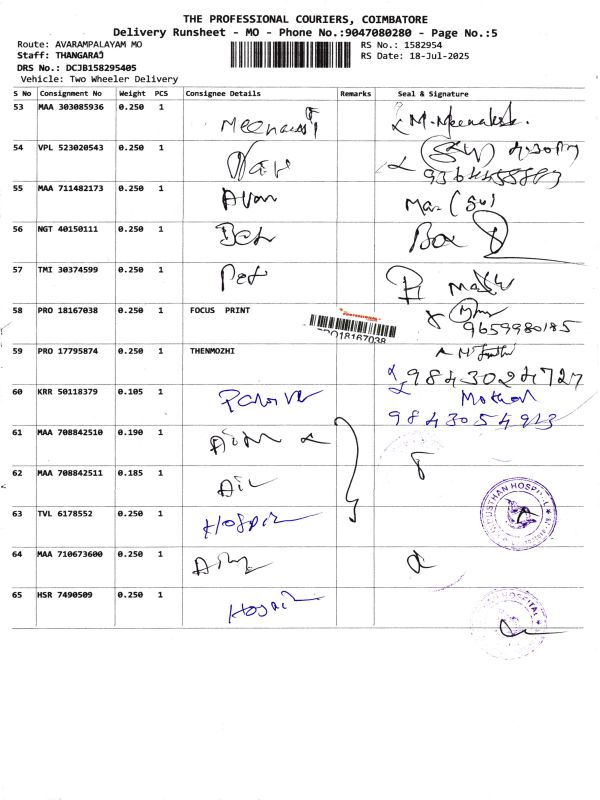 THE PROFESSIONAL COURIERS, COIMBATORE
Delivery Runsheet - MO - Phone No.:9047080280 - Page No.:5
Route: AVARAMPALAYAM MO RS No.: 1582954
Staff: THANGARAJ RS Date: 18-Jul-2025
DRS No.: DCJB158295405
Vehicle: Two Wheeler Delivery
S No Consignment No Weight PCS Consignee Details Remarks Seal & Signature
53 MAA 303085936 0.250 1 M. Meenakshi
54 VPL 523020543 0.250 1 4.30 PM
55 MAA 711482173 0.250 1
56 NGT 40150111 0.250 1 Box
57 TMI 30374599 0.250 1
58 PRO 18167038 0.250 1 FOCUS PRINT PRO18167038 9659980185
59 PRO 17795874 0.250 1 THENMOZHI 9843024727
60 KRR 50118379 0.105 1 Mother
9843054913
61 MAA 708842510 0.190 1
62 MAA 708842511 0.185 1
63 TVL 6178552 0.250 1 HOSPITAL
64 MAA 710673600 0.250 1
65 HSR 7490509 0.250 1 HOSPITAL